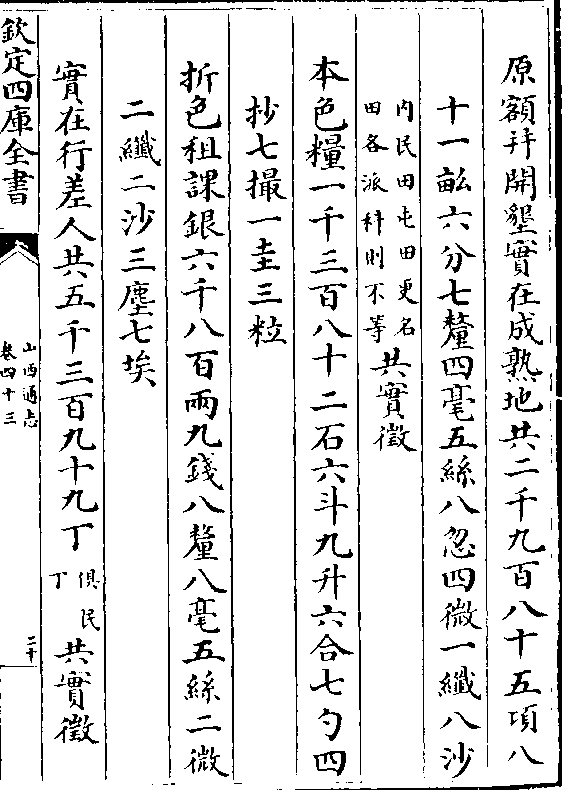 原額幷開墾實在成熟地共二千九百八十五項八
十一畝六分七釐四毫五絲八忽四微一纖八沙
內民田屯田更名
田各派科則不等
共實徵
本色糧一千三百八十二石六斗九升六合七勺四
抄七撮一圭三粒
折色租課銀六千八百兩九錢八釐八毫五絲二微
二纖二沙三塵七埃
實在行差人共五千三百九十九丁
俱民
丁
共實徵
欽定四庫全書
山西通志
卷四十三
二十